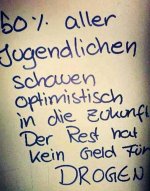 60% aller
Jugendlichen
schauen
optimistisch
in die Zukunft
Der Rest hat
kein Geld für
DROGEN